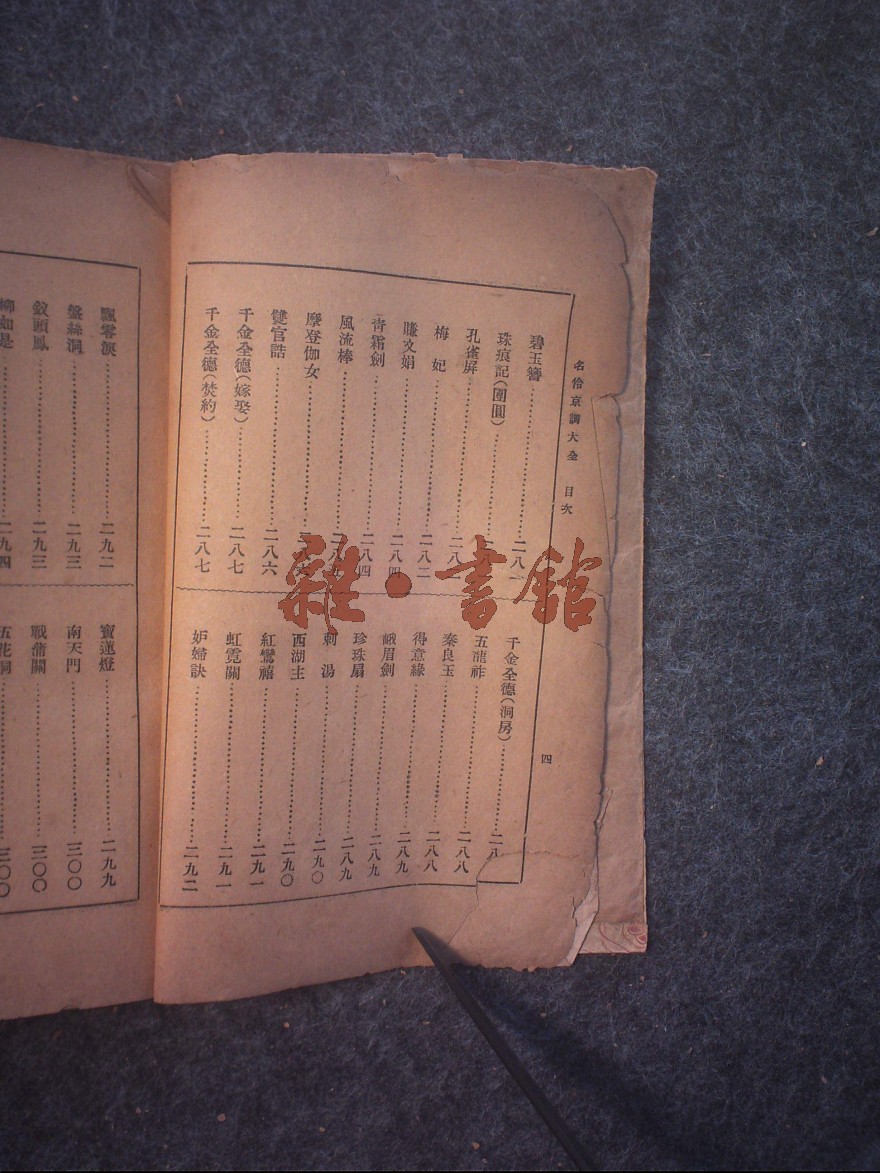 名伶京調大全 目次
四
碧玉簪 二八一
珠痕記(團圓)
孔雀屏
梅妃 二八二
賺文娟 二八四
青霜劍 二八四
風流棒
摩登伽女
雙官誥 二八六
千金全德(嫁娶) 二八七
千金全德(焚約) 二八七
千金全德(洞房) 二八
五龍祚 二八八
秦良玉 二八八
得意緣 二八九
峨眉劍 二八九
珍珠扇 二八九
刺湯 二九〇
西湖主 二九〇
紅鸞禧 二九一
虹霓關 二九一
妒婦訣 二九二
飄零淚 二九二
盤絲洞 二九三
釵頭鳳 二九三
柳如是 二九四
寶蓮燈 二九九
南天門 三〇〇
戰蒲關 三〇〇
五花洞 三〇〇
雜·書館